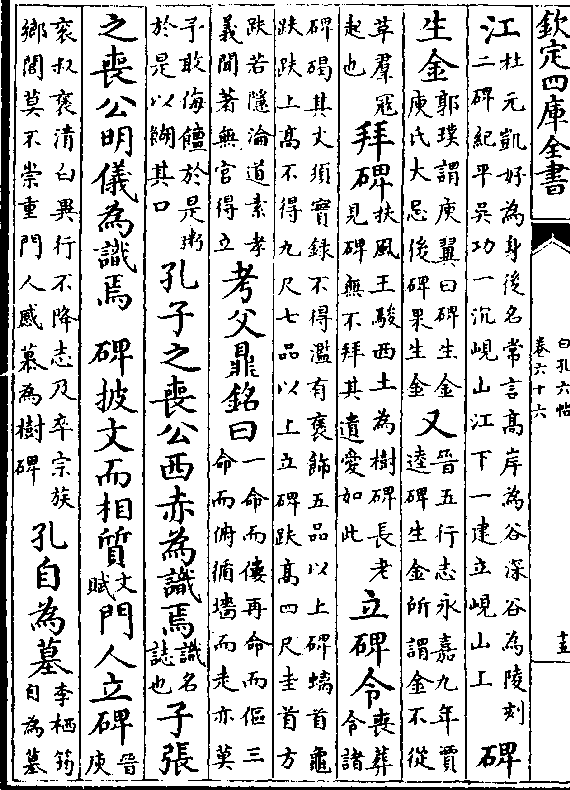 欽定四庫全書
白孔六帖
卷六十六
江
杜元凱好為身後名常言髙岸為谷深谷為陵刻
二碑紀平吳功一沉峴山江下一建立峴山上
碑
生金
郭璞謂庾翼曰碑生金
庾氏大忌後碑果生金
又
晉五行志永嘉九年賈
逵碑生金所謂金不從
草羣冦
起也
拜碑
扶風王駿西土為樹碑長老
見碑無不拜其遺愛如此
立碑令
喪葬
令諸
碑碣其文須實録不得濫有褒飾五品以上碑螭首龜
趺趺上髙不得九尺七品以上立碑趺髙四尺圭首方
趺若隱淪道素孝
義聞著無官得立
考父鼎銘曰
一命而僂再命而傴三
命而俯循墻而走亦莫
予敢侮饘於是粥
於是以餬其口
孔子之喪公西赤為識焉
識名
誌也
子張
之喪公明儀為識焉
碑披文而相質
文
賦
門人立碑
晉
庾
衮叔褒清白異行不降志及卒宗族
鄉閭莫不崇重門人感慕為樹碑
孔自為墓
李栖筠
自為墓